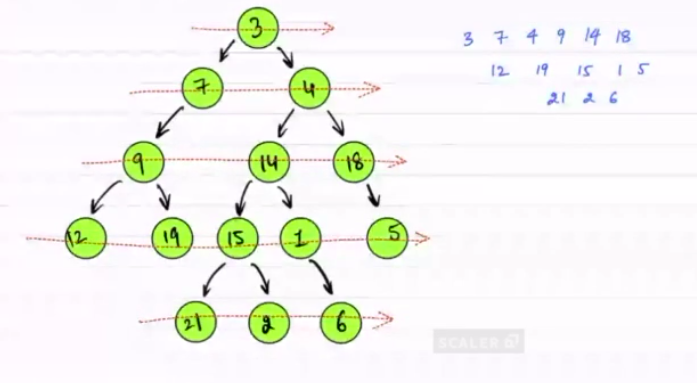 3
7 4
9 14 18
12 19 15 1 5
21 2 6
3 7 4 9 14 18
12 19 15 1 5
21 2 6
SCALER